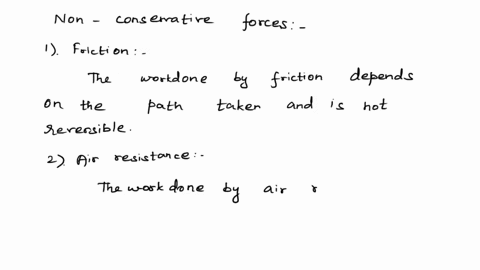 Non - conservative forces:-
1). Friction:-
The workdone by friction depends
on the path taken and is not
reversible.
2) Air resistance:-
The work done by air r